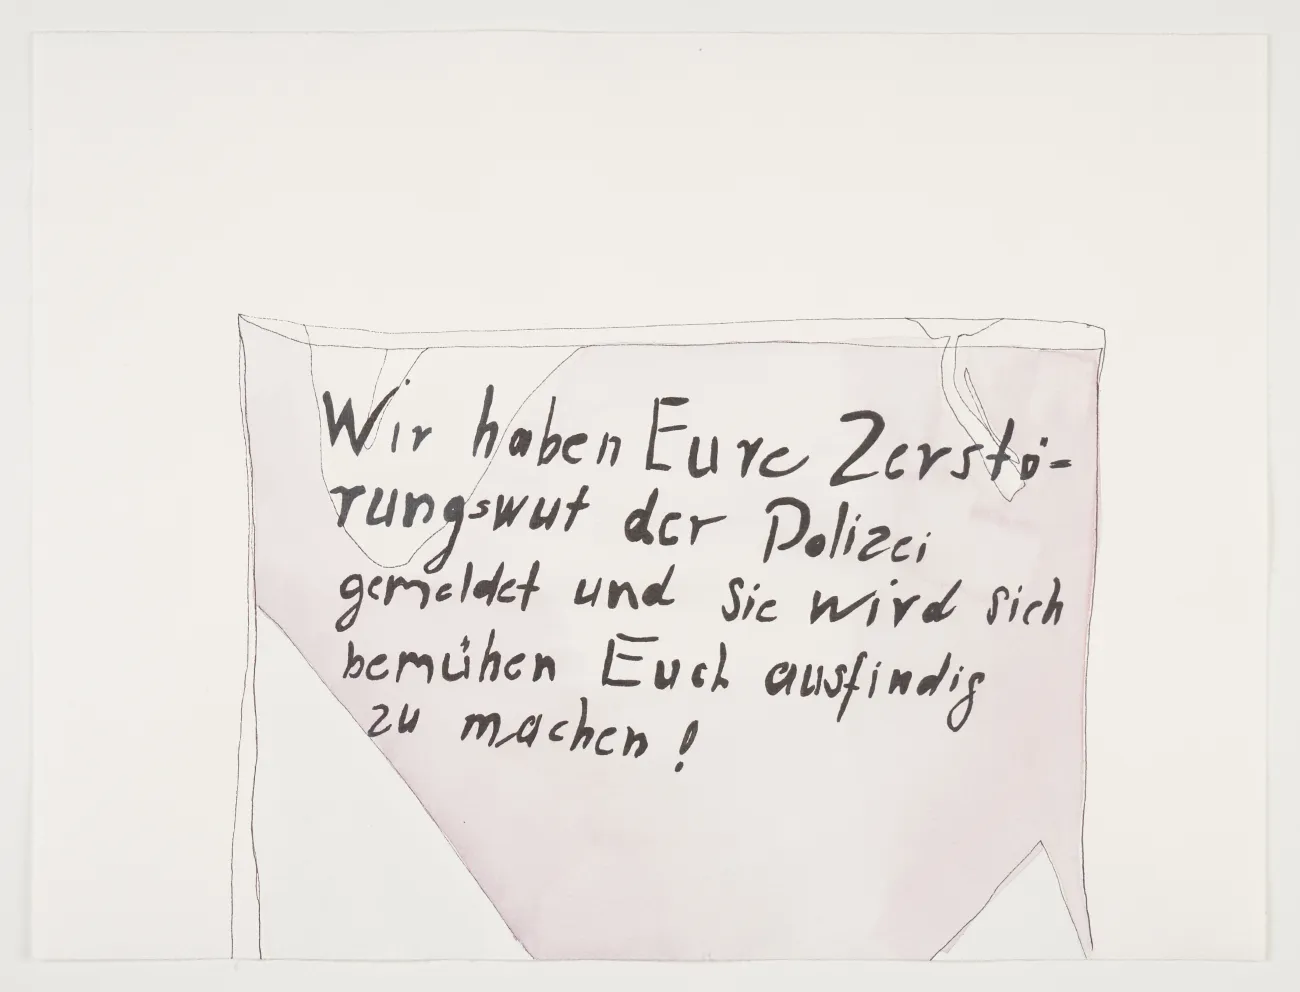 Wir haben Eure Zerstö-
rungswut der Polizei
gemeldet und Sie wird sich
bemühen Euch ausfindig
zu machen!